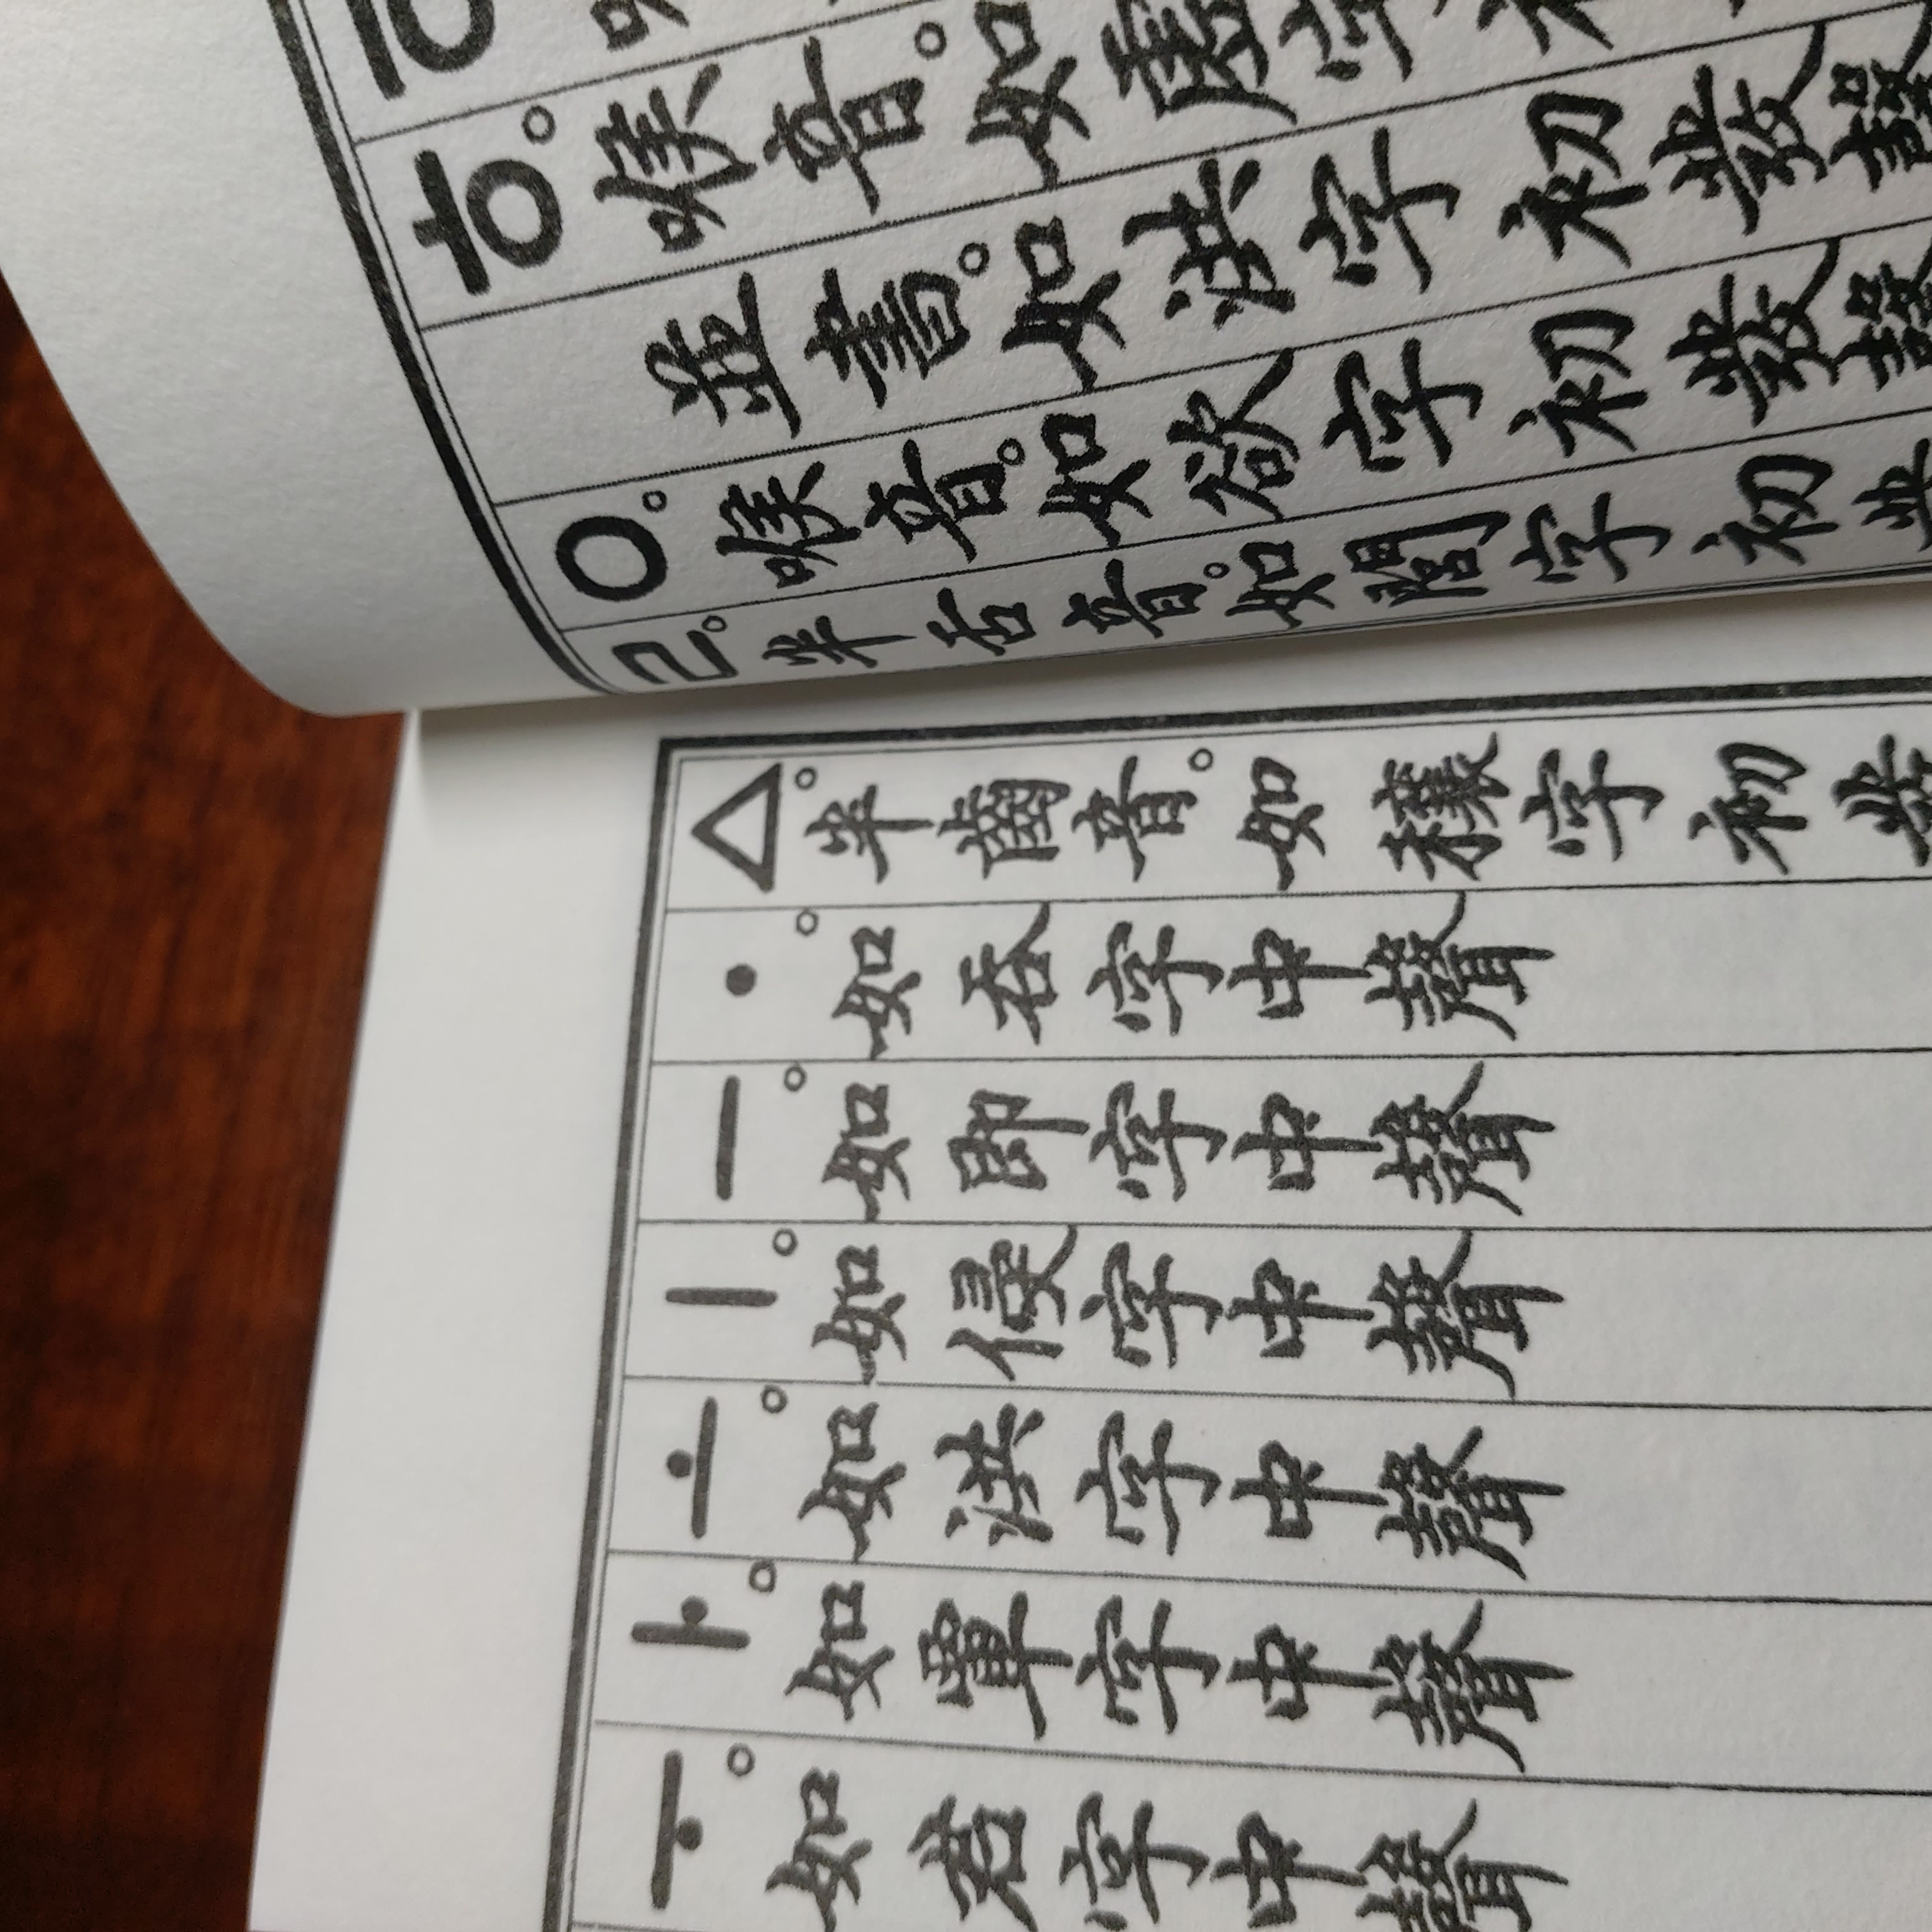 ㅎ。喉音。如虛字初
並書。如洪字初發聲
ㅇ。喉音。如欲字初發聲
ㄹ。半舌音。如閭字初
ㅿ。半齒音。如穰字初
ㆍ。如呑字中聲
ㅡ。如即字中聲
ㅣ。如侵字中聲
ㅗ。如洪字中聲
ㅏ。如覃字中聲
ㅜ。如君字中聲